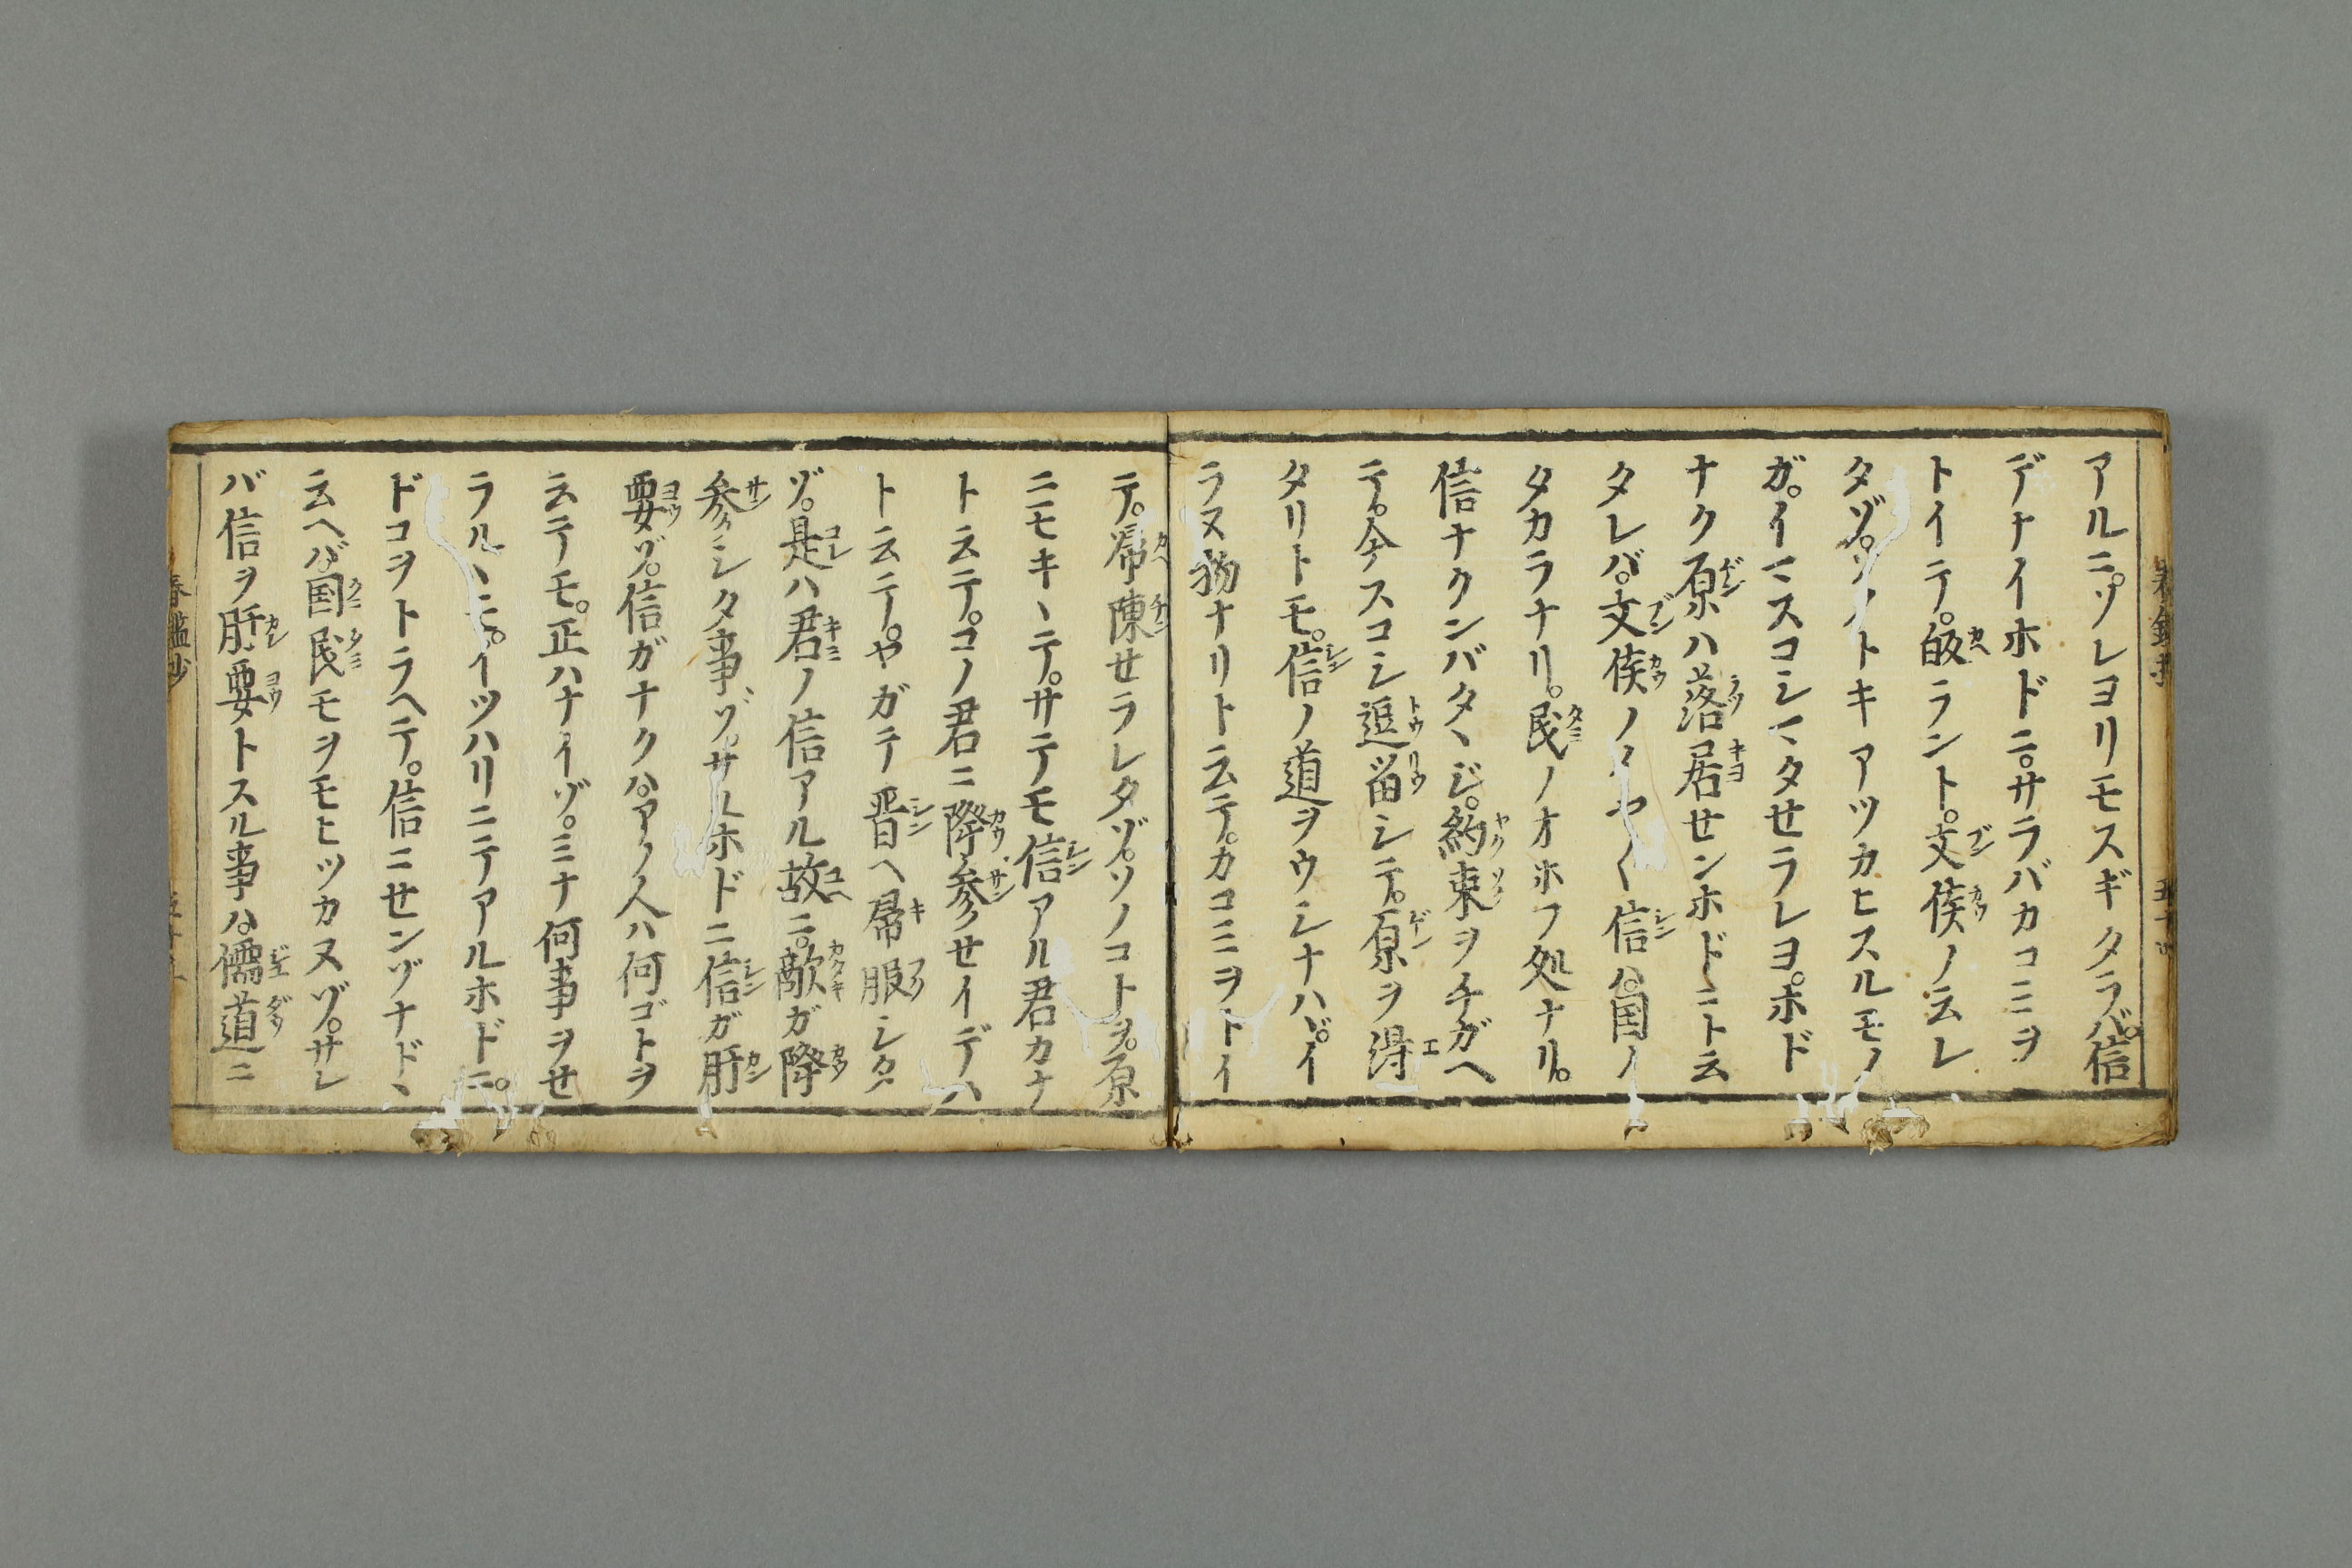 アルニ。ソレヨリモスギタラバ。信
デナイホドニ。サラバカコミヲ
トイテ。皈ラント。文侯ノ云レ
タゾ。ソノトキアツカヒスルモノ
ガ。イマスコシマタせラレヨ。ホド
ナク原ハ落居せンホドニト云
タレバ。文侯ノ信ハ。国ノ
タカラナリ。民ノオホフ処ナリ。
信ナクンバタヽジ。約束ヲチガヘ
テ。今スコシ逗留シテ。原ヲ得
タリトモ。信ノ道ヲウシナハヾ。イ
ラヌ物ナリト云テ。カコミヲトイ
テ。帰陳せラレタゾ。ソノコトヲ。原
ニモキヽテ。サテモ信アル君カナ
ト云テ。コノ君ニ降参せイデハ
ト云テ。ヤガテ晋ヘ帰服シタ
ゾ。是ハ君ノ信アル故ニ。敵ガ降
参シタ事ゾ。サルホドニ信ガ肝
要ゾ。信ガナクハ。アノ人ハ何ゴトヲ
云テモ。正ハナイゾ。ミナ何事ヲせ
ラルヽモ。イツハリニテアルホドニ。
ドコヲトラヘテ。信ニせンゾナドヽ
云ヘバ。国民モヲモヒツカヌゾ。サレ
バ信ヲ肝要トスル事ハ。儒道ニ
春鑑抄